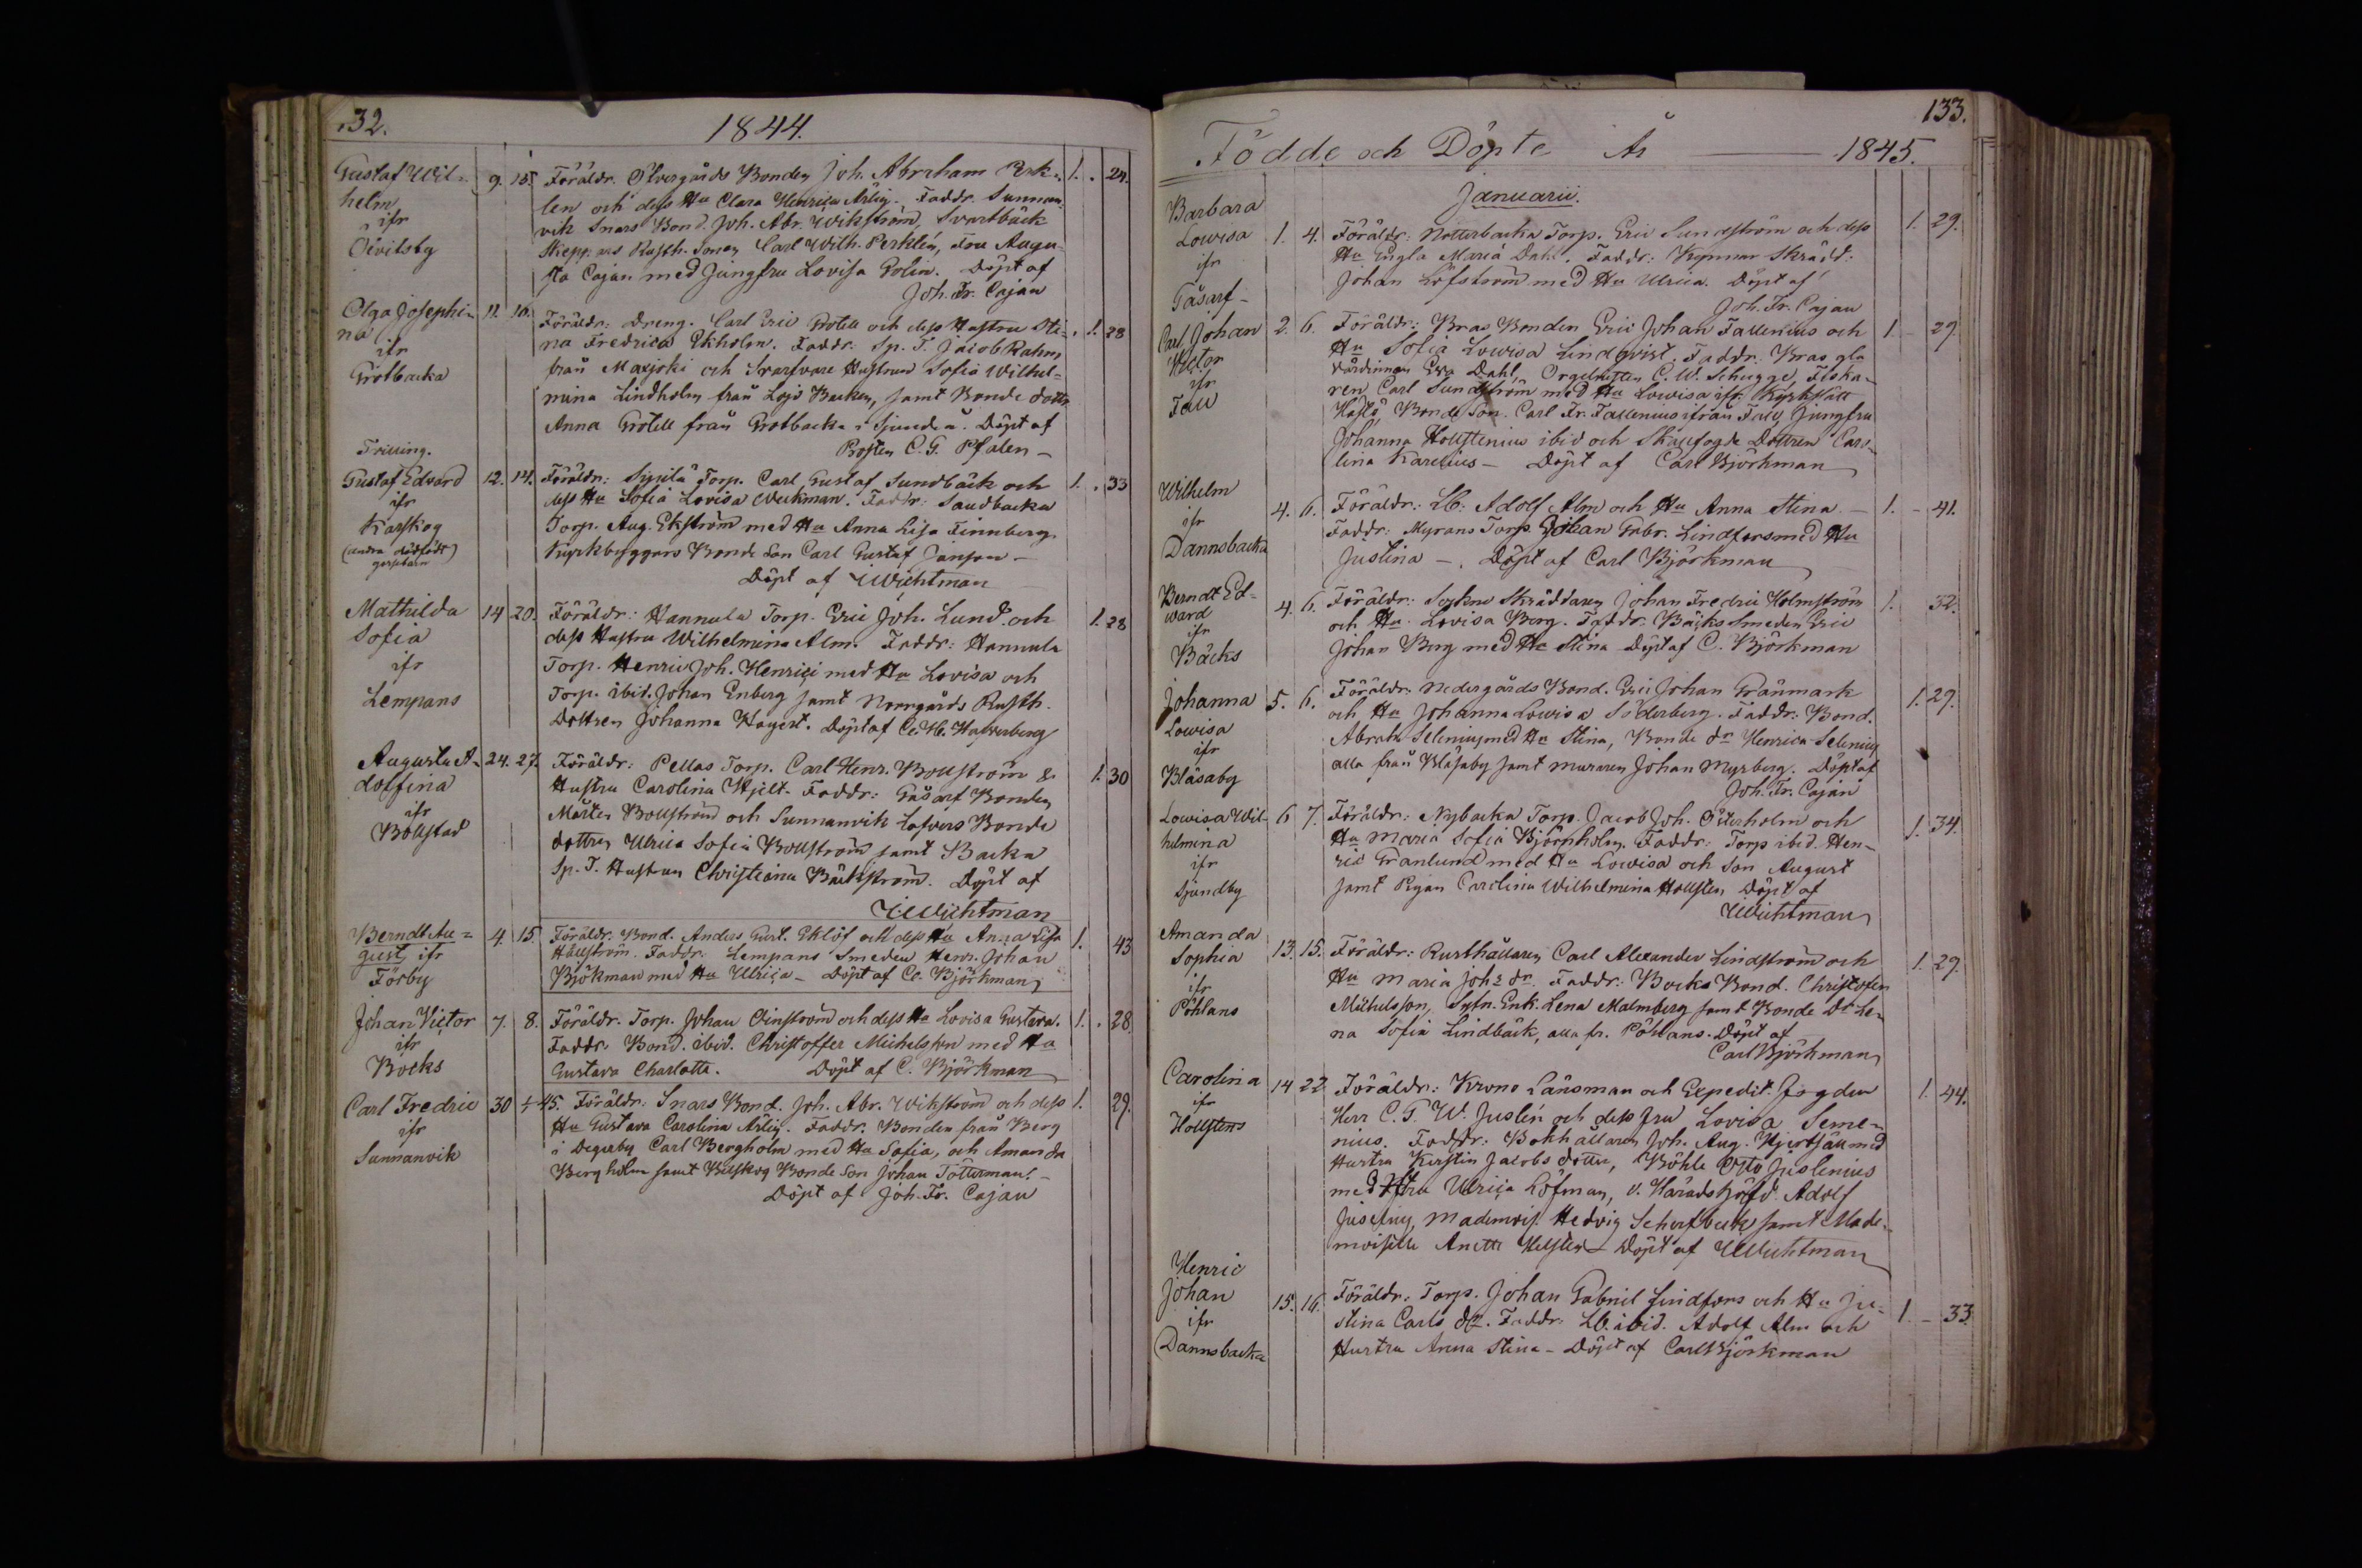 132.
1844.
Gustaf Wil-
helm
ifr
Öfvitsby
9. 15. Föräldr. Öfvergårds Bonden Joh. Abraham Perk- 1. . 24.
len och dess Hu Clara Henrica Ärlig. Faddr. Sunnan-
vik Snars Bond. Joh. Abr. Wikström, Svartbäck
Skepp. ars Rusth. Sonen Carl Wilh. Perklén, Fru Augu-
sta Cajan med Jungfru Lovisa Polin. Döpt af
Joh. Fr. Cajan
Olga Josephi-
na
ifr
Grotbacka
11. 16. Föräldr: Dreng. Carl Eric Grotell och dess Hustru Sti- . 1. 28
na Fredrica Ekholm. Faddr: Sp. T. Jacob Rahm
från Marjoki och Svarfvare Hustrun Sofia Wilhel-
mina Lindholm från Lojo Backen, samt Bonde dottr
Anna Grotell från Grotbacka i Sjundeå. Döpt af
Prosten C. G. Pfalen -
Trilling.
Gustaf Edvard
ifr
Karskog
(andra dödfödt)
gossebarn
12. 14. Föräldr: Sippilä Torp. Carl Gustaf Sundbäck och 1. . 33
dess Hu Sofia Lovisa Weckman. Faddr: Sandbacka
Torp. Aug. Ekström med Hu Anna Lisa Finnberg.
Kyrkbyggars Bonde Son Carl Gustaf Janson -
Döpt af Wichtman
Mathilda
Sofia
ifr
Lempans
14 20. Föräldr: Hannula Torp. Eric Joh. Lund och 1. 28
dess Hustru Wilhelmina Alm. Faddr: Hannula
Torp. Henric Joh. Henrici med Hu Lovisa och
Torp. ibid. Johan Enberg samt Norrgårds Rusth.
Dottren Johanna Hagert. Döpt af
Augusta A-
dolfina
ifr
Bollstad
24. 27. Föräldr: Pellas Torp. Carl Henr. Bollström & 1. 30
Hustru Carolina Hjelt. Faddr: Gåsarf Bonden
Mårten Bollström och Sunnanvik Lafvers Bonde
dottren Ulrica Sofia Bollström samt Backa
Sp. T. Hustrun Christiana Bäckström. Döpt af
Wichtman
Berndt Au-
gust ifr
Förby
4. 15. Föräldr. Bond. Anders Gust. Eklöf och dess Hu Anna Lisa 1. 43
Hållström. Faddr. Lempans Smeden Henr. Johan
Björkman med Hu Ulrica - Döpt af C. Björkman
Johan Victor
ifr
Bocks
7. 8. Föräldr. Torp. Johan Oinström och dess Hu Lovisa Gustava. 1. . 28.
Faddr. Bond. ibid. Christoffer Michelsson med Hu
Gustava Charlotta. Döpt af C. Björkman
Carl Fredric
ifr
Sunnanvik
30 1/1 45. Föräldr: Snars Bond. Joh. Abr. Wikström och dess 1. 29.
Hu Gustava Carolina Ärlig. Faddr. Bonden från Berg
i Degerby Carl Bergholm med Hu Sofia, och Amanda
Bergholm samt Billskog Bonde Son Johan Tötterman. -
Döpt af Joh. Fr. Cajan
133.
Födde och Döpte År 1845.
Januarii.
Barbara
Lowisa
ifr
Gåsarf -
1. 4. Föräldr: Notterbacka Torp. Eric Sundström och dess 1. 29.
Hu Engla Maria Dahl. Faddr: Kynnar Skrädd:
Johan Löfström med Hu Ulrica. Döpt af
Joh. Fr. Cajan
Carl Johan
Victor
ifr
Fall
2. 6. Föräldr: Bras Bonden Eric Johan Fallenius och 1 - 29.
Hu Sofia Lowisa Lindqvist. Faddr: Bras gla
Värdinnan Eva Dahl, Orgelnisten C. W. Schugge, Fiska-
ren Carl Sundström med Hu Lowisa ifr. Kyrkslätt
Bonde Son Carl Fr. Fallenius ifrån Fall, Jungfru
Johanna Hollstenius ibid och Skallfogde Dottren Caro-
lina Karelius - Döpt af Carl Björkman
Wilhelm
ifr
Dannsbacka
4. 6. Föräldr: Lb: Adolf Alm och Hu Anna Stina - 1. - 41.
Faddr: Myrans Torp. Johan Gabr. Lindfors med Hu
Justina - . Döpt af Carl Björkman
Berndt Ed-
ward
ifr
Bäcks
4. 6. Föräldr: Sockne Skräddaren Johan Fredric Holmström 1. 32.
och Hu Lovisa Berg. Faddr. Bäcks Smeden Eric
Johan Berg med Hu Stina Döpt af C. Björkman
Johanna
Lowisa
ifr
Blåsaby
5. 6. Föräldr: Nedergårds Bond. Eric Johan Granmark 1. 29.
och Hu Johanna Lowisa Söderberg. Faddr: Bond.
Abrah. Selenius med Hu Stina, Bonde dr Henrica Selenius
alla från Blåsaby samt muraren Johan Myrberg. Döpt af
Joh. Fr. Cajan
Lowisa Wil-
helmina
ifr
Sjundby
6 7. Föräldr: Nybacka Torp. Jacob Joh. Österholm och 1. 34.
Hu Maria Sofia Björnholm. Faddr: Torp ibid. Hen-
ric Granlund med Hu Lowisa och Son August
samt Pigan Carolina Wilhelmina Hollsten Döpt af
Wichtman
Amanda
Sophia
ifr
Pöhlans
13. 15. Föräldr: Rusthållaren Carl Alexander Lindström och 1. 29.
Hu Maria Johs dr. Faddr: Bocks Bond. Christofer
Michelsson, Sytn. Enk. Lena Malmberg samt Bonde Dr Le-
na Sofia Lindbäck, alla fr. Pöhlans. Döpt af
Carl Björkman
Carolina
ifr
Hollstens
14 22. Föräldr: Krono Länsman och Expedit. Fogden 1. 44.
Herr C. G. W. Juslén och dess Fru Lovisa Seme-
nius. Faddr: Bokhållaren Joh. Aug. Hjertsjäll med
Hustru Kerstin Jacobs dotter, Böhle Otto Juslenius
med Hstru Ulrica Löfman, v. Häradshöfd. Adolf
Mademois. Hedvig samt Made-
moiselle Anette Döpt af Wichtman
Henric
Johan
ifr
Dannsbacka
15. 16. Föräldr: Torp. Johan Gabriel Lindfors och Hu Ju- 1. - 33.
stina Carls dr. Faddr: Lb. ibid. Adolf Alm och
Hustru Anna Stina - Döpt af Carl Björkman